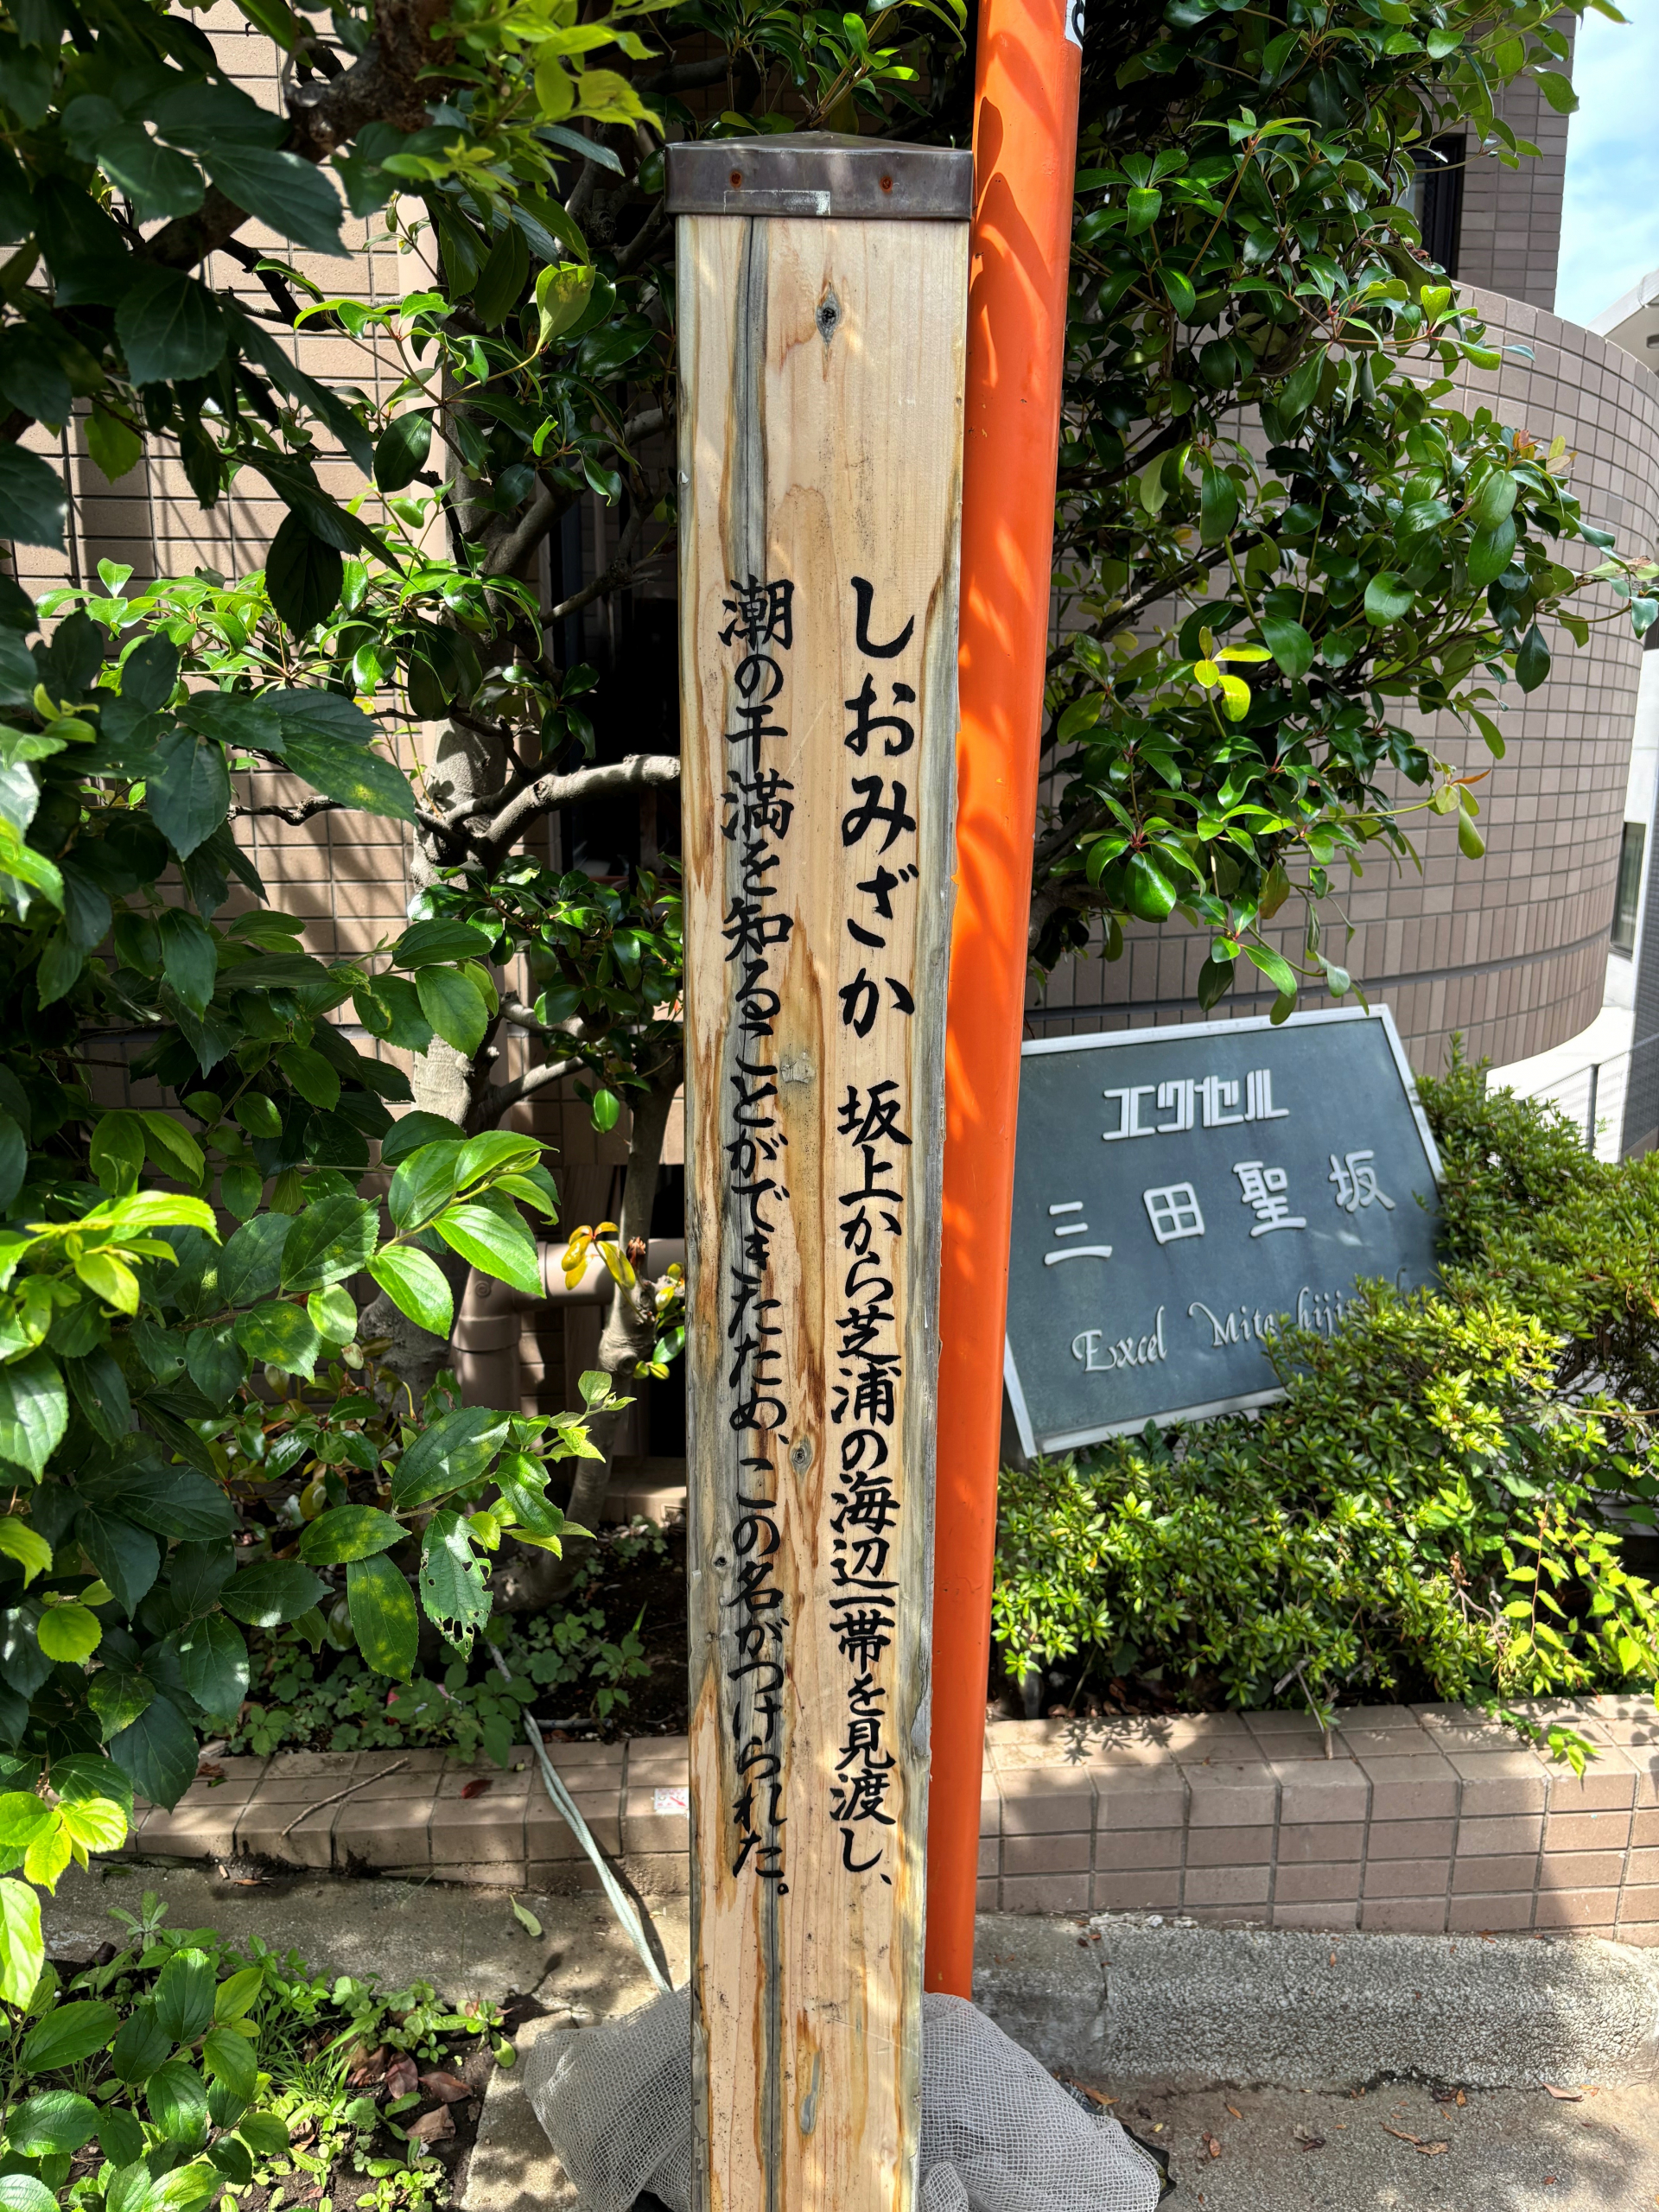 しおみざか 坂上から芝浦の海辺一帯を見渡し、
潮の干満を知ることができたため、この名がつけられた。
エクセル
三田聖坂
Excel Mita